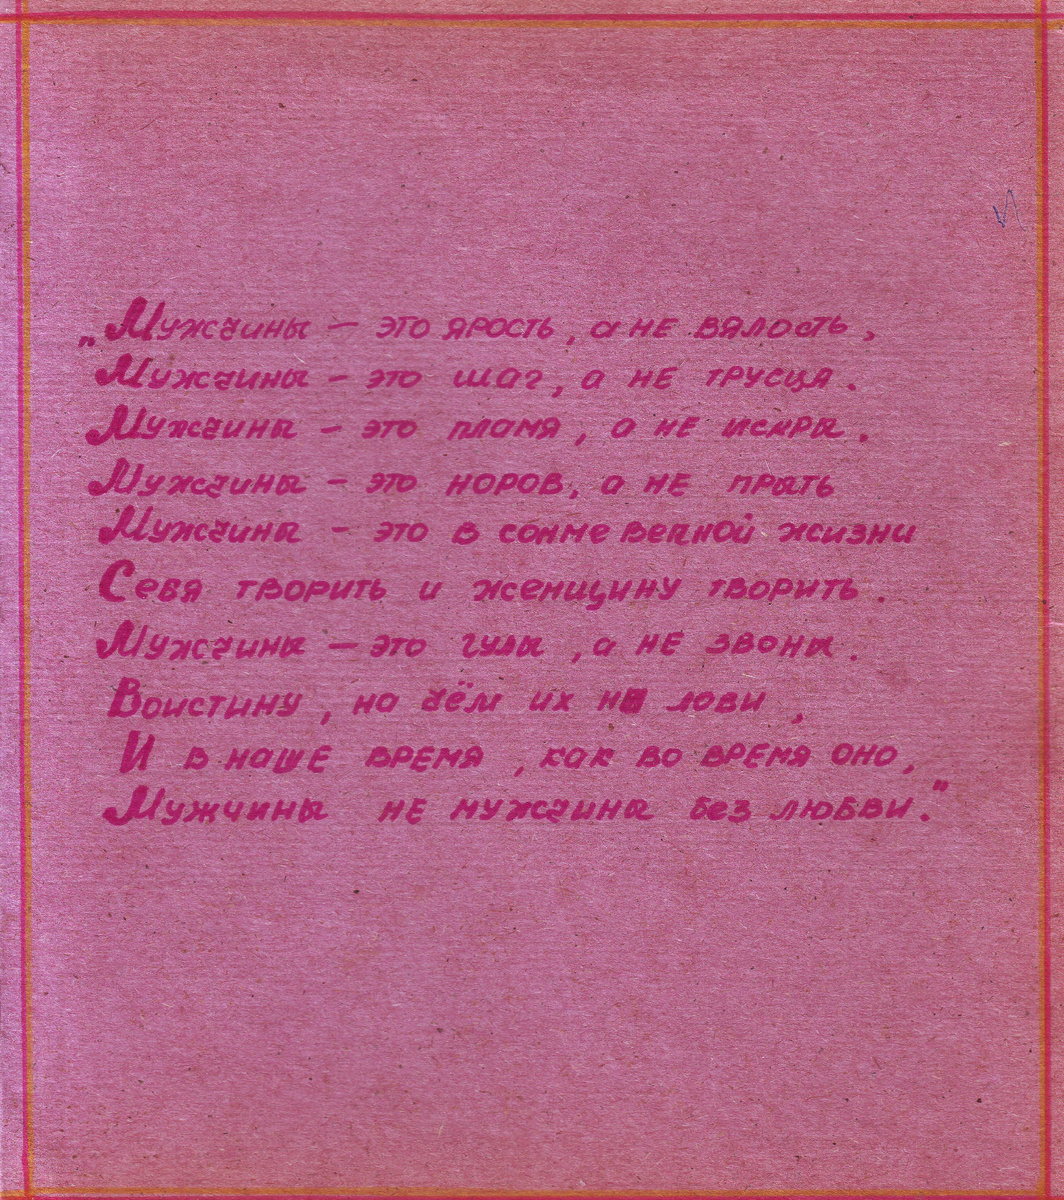 „Мужчины — это ярость, а не вялость,
Мужчины – это шаг, а не трусца.
Мужчины – это пламя, а не искры.
Мужчины – это норов, а не прыть
Мужчины – это в сонме вечной жизни
Себя творить и женщину творить.
Мужчины — это гулы, а не звоны.
Воистину, на чём их не лови,
И в наше время, как во время оно,
Мужчины не мужчины без любви."